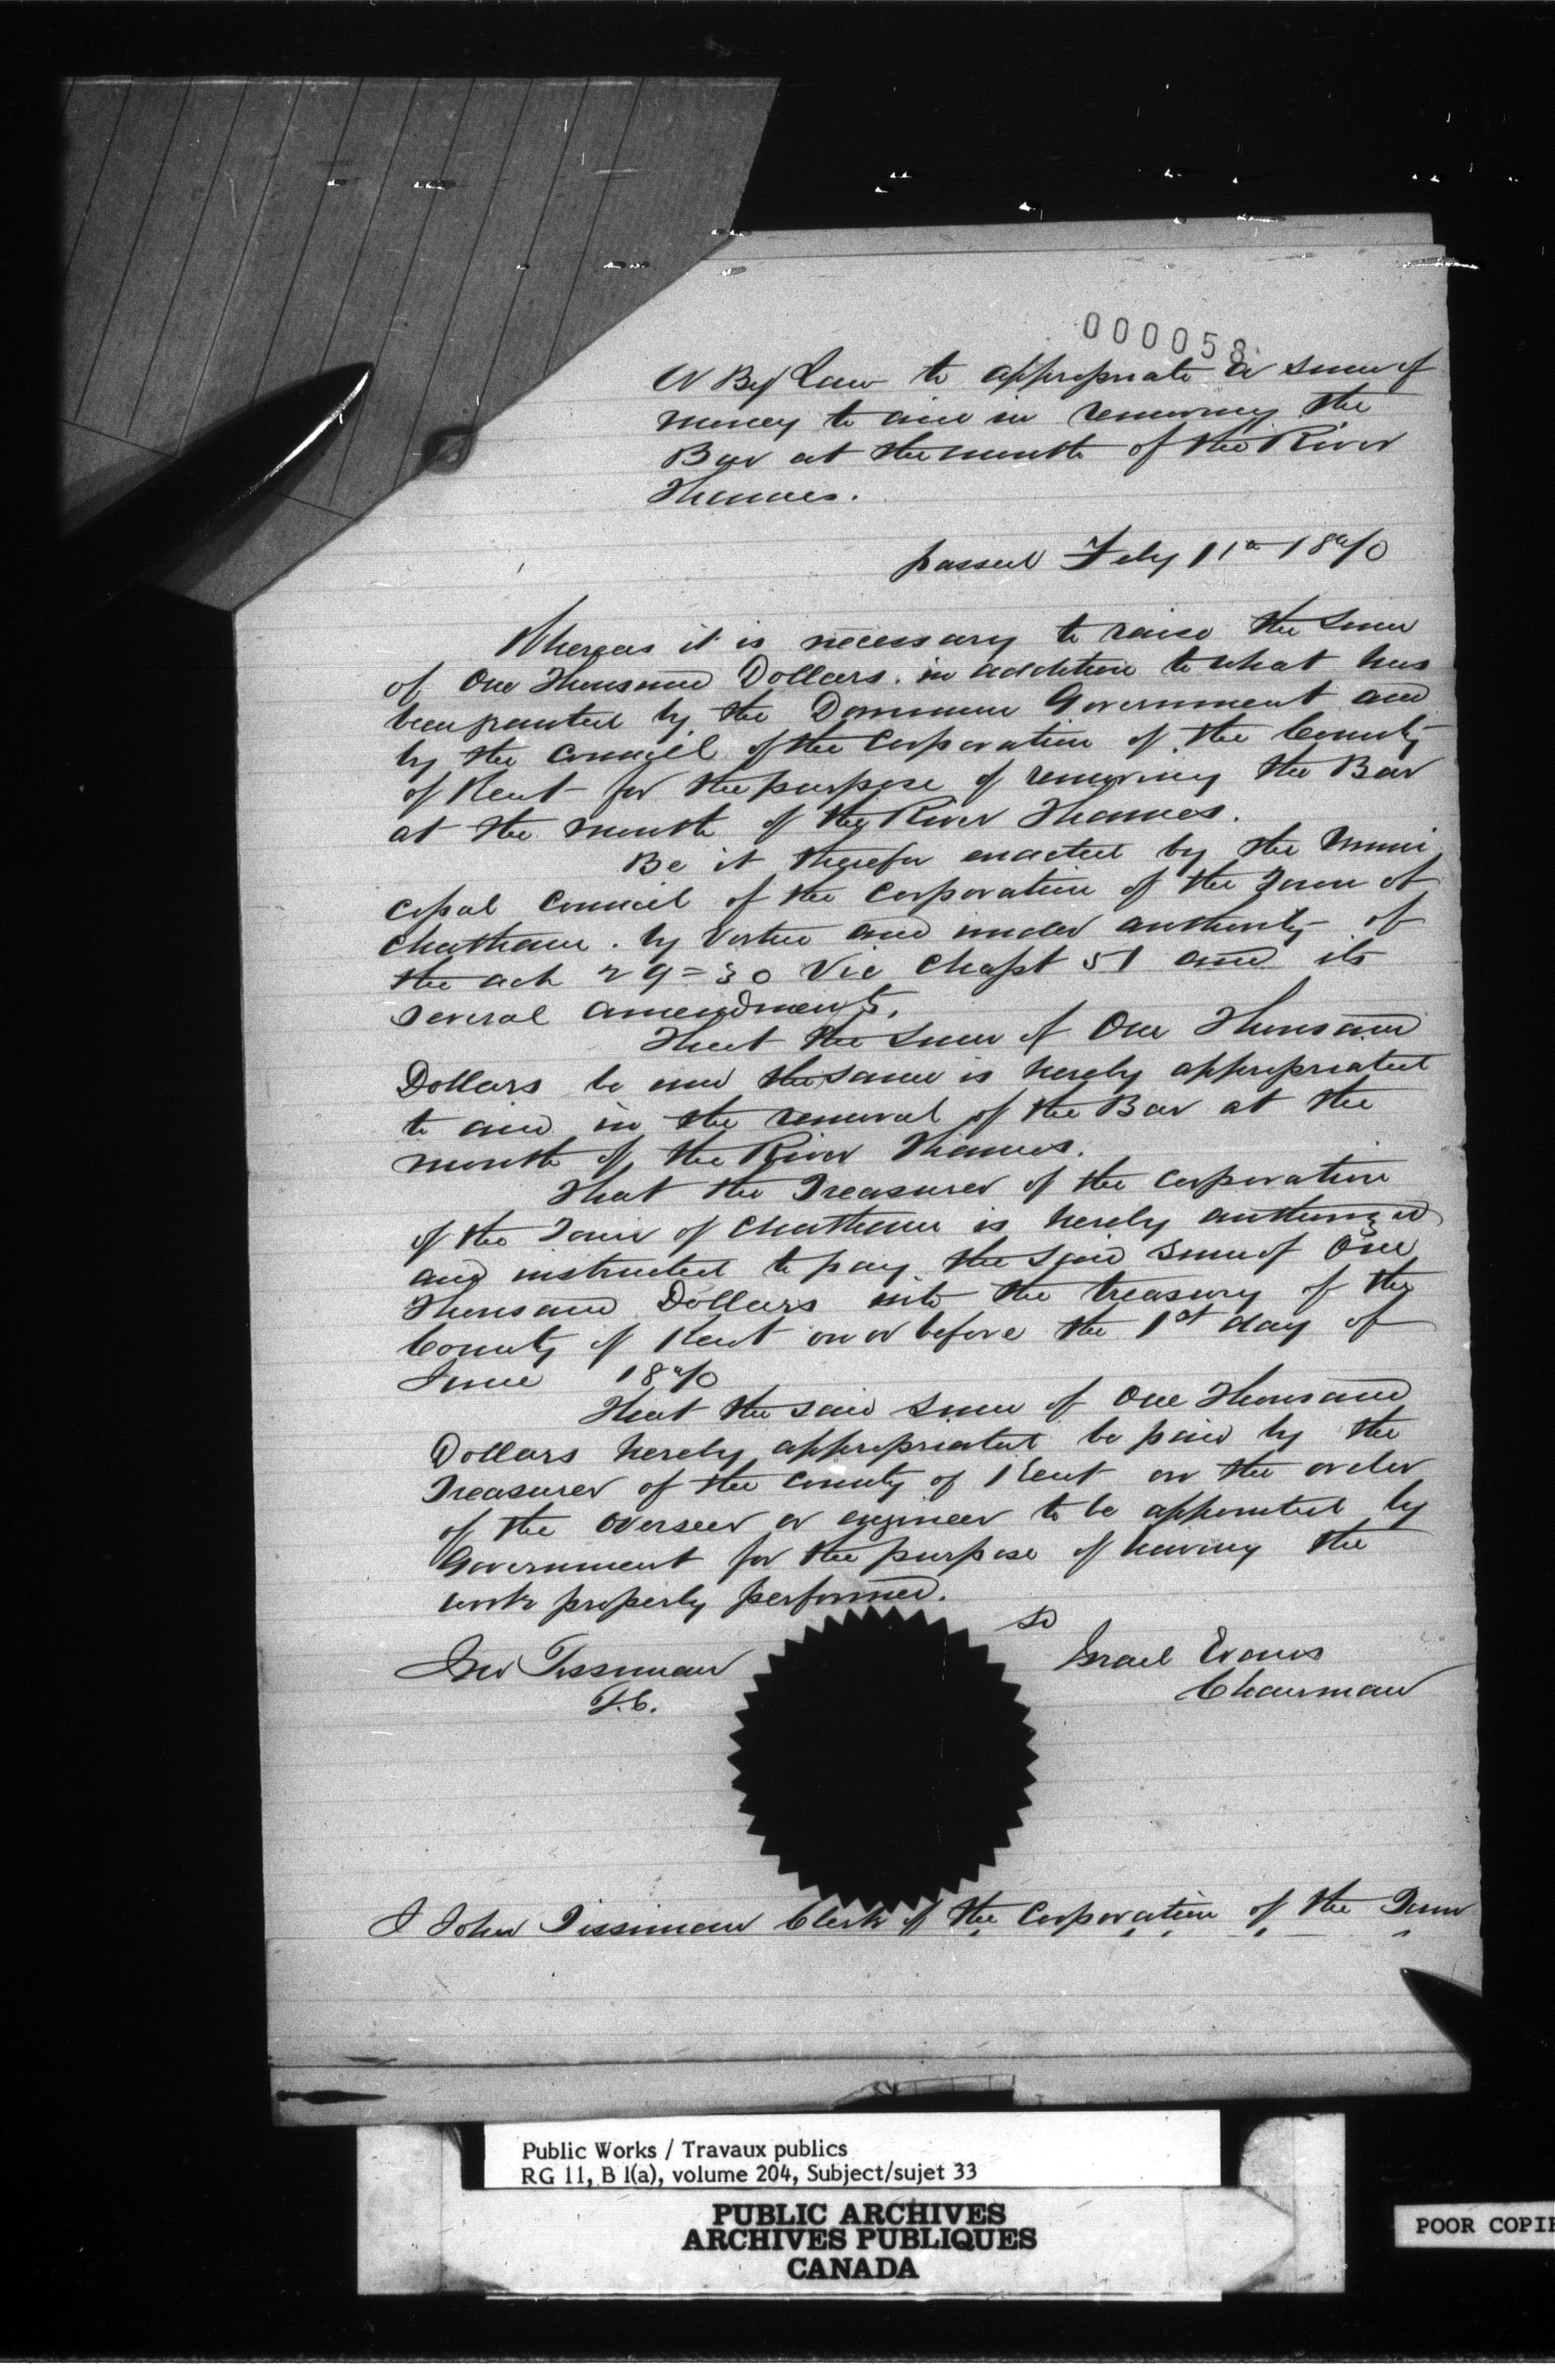 000058
A By Law to appropriate a sum of
money to aid in removing the
Bar at the mouth of the River
Thames.
passed Feby 11th 1870
Whereas it is necessary to raise the sum
of One Thousand Dollars. in addition to what has
been granted by the Dominion Government and
by the Council of the Corporation of the County
of Kent for the purpose of removing the Bar
at the mouth of the River Thames.
Be it therefor enacted by the Muni
cipal Council of the Corporation of the Town of
Chatham. by Vertue and under authority of
the act 29=30 Vic Chapt 51 and its
several amendments.
That the sum of One Thousand
Dollars be and the same is hereby appropriated
to aid in the removal of the Bar at the
mouth of the River Thames.
That the Treasurer of the Corporation
of the Town of Chatham is hereby authorized
and instructed to pay the said sum of One
Thousand Dollars into the treasury of the
County of Kent on or before the 1st day of
June 1870
That the said sum of One Thousand
Dollars hereby appropriated be paid by the
Treasurer of the County of Kent on the order
of the overseer or engineer to be appointed by
Government for the purpose of having the
work properly performed.
Jno Tissiman
T.C.
Sd
Israel Evans
Chairman
I John Tissiman Clerk of the Corporation of the Town
Public Works / Travaux publics
RG 11, B 1(a), volume 204, Subject/sujet 33
PUBLIC ARCHIVES
ARCHIVES PUBLIQUES
CANADA
POOR COPIE